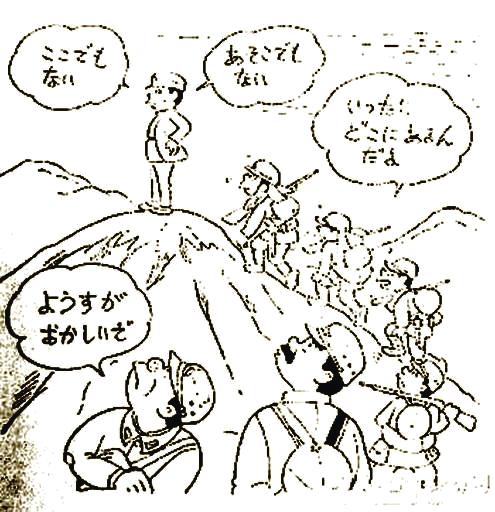 ここでも
ない
あそこでも
ない
いったい
どこにあるん
だよ
ようすが
おかしいぞ